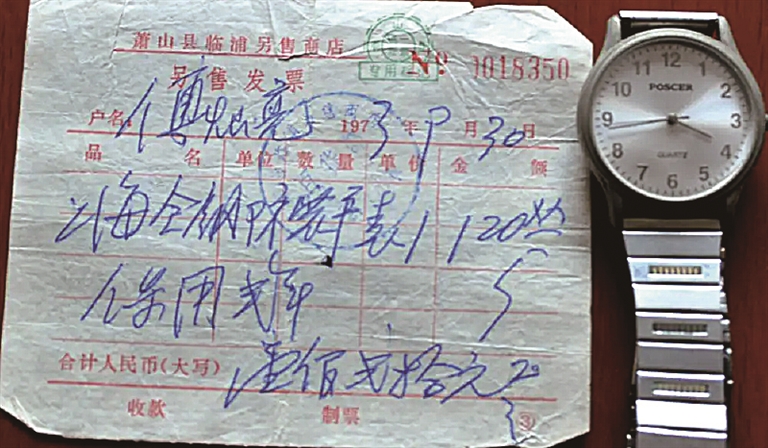 萧山县临浦另售商店
另售发票
专用
№ 1018350
户名 傅 亮 1973年9月30日
品名 单位 数量 单价 金额
上海全钢防震平表 1 120
保用弍年
合计人民币(大写) 壹佰弍拾元
收款 制票 ③
12 1 2 3 4 5 6 7 8 9 10 11
POSCER
QUARTZ